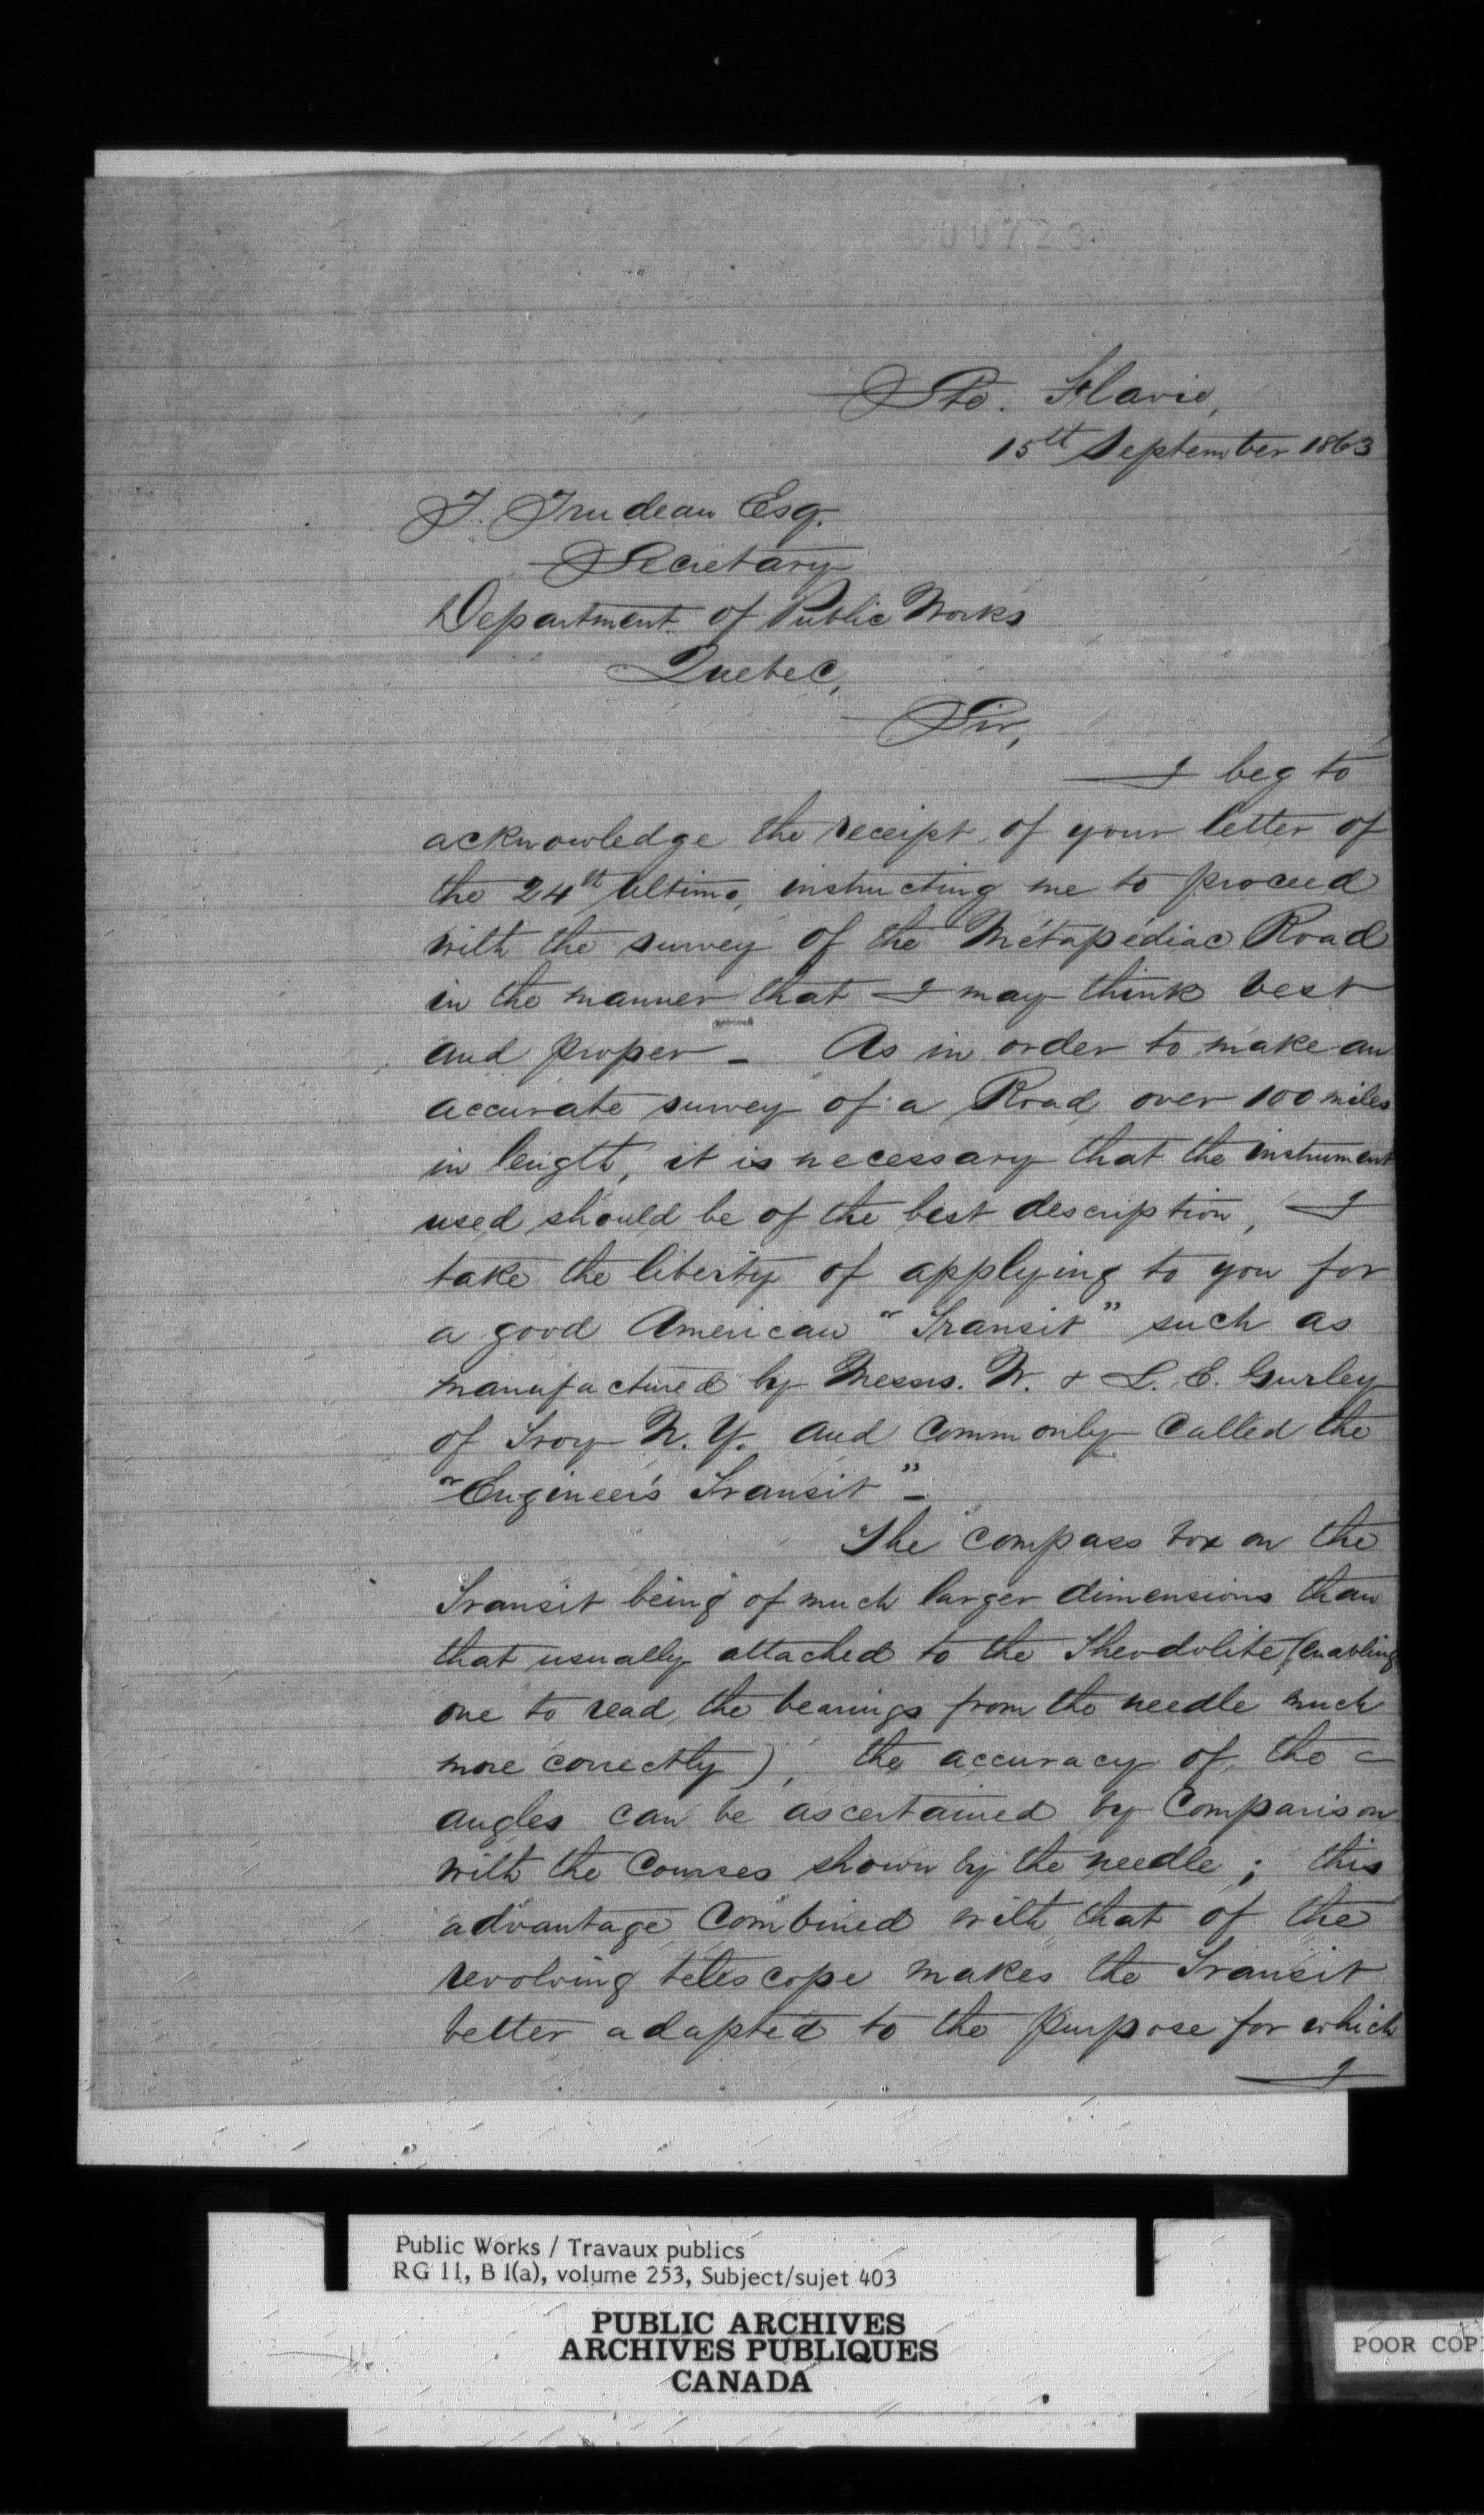 000723
Ste. Flavie,
15th September 1863
T. Trudeau Esq.
Secretary
Department of Public Works
Quebec,
Sir,
I beg to
acknowledge the receipt of your letter of
the 24th Ultimo, instructing me to proceed
with the survey of the Métapédiac Road
in the manner that I may think best
and proper - As in order to make an
accurate survey of a Road over 100 miles
in length, it is necessary that the instrument
used should be of the best description, I
take the liberty of applying to you for
a good American "Transit" such as
manufactured by Messrs. W. & L. E. Gurley
of Troy N. Y. and Commonly Called the
"Engineer's Transit" -
The compass box on the
Transit being of much larger dimensions than
that usually attached to the Theodolite, (enabling
one to read the bearings from the needle much
more correctly), the accuracy of the
angles can be ascertained by Comparison
with the Courses shown by the needle; this
advantage Combined with that of the
revolving telescope makes the Transit
better adapted to the purpose for which
I
Public Works / Travaux publics
RG 11, B 1(a), volume 253, Subject/sujet 403
PUBLIC ARCHIVES
ARCHIVES PUBLIQUES
CANADA
POOR COP